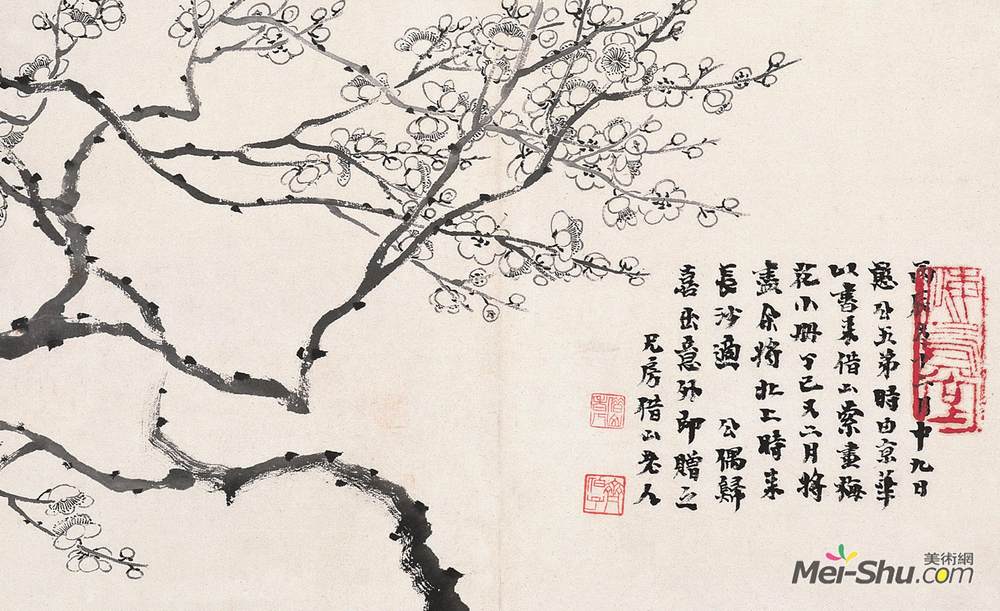 丙辰十一月十九日
公五弟時由京華
以書來借山索畫梅
花小冊丁巳又二月將
畫余將北上時來
長沙適 公偶歸
喜出意外即贈之
兄借山老人
美術網
Mei-Shu.com